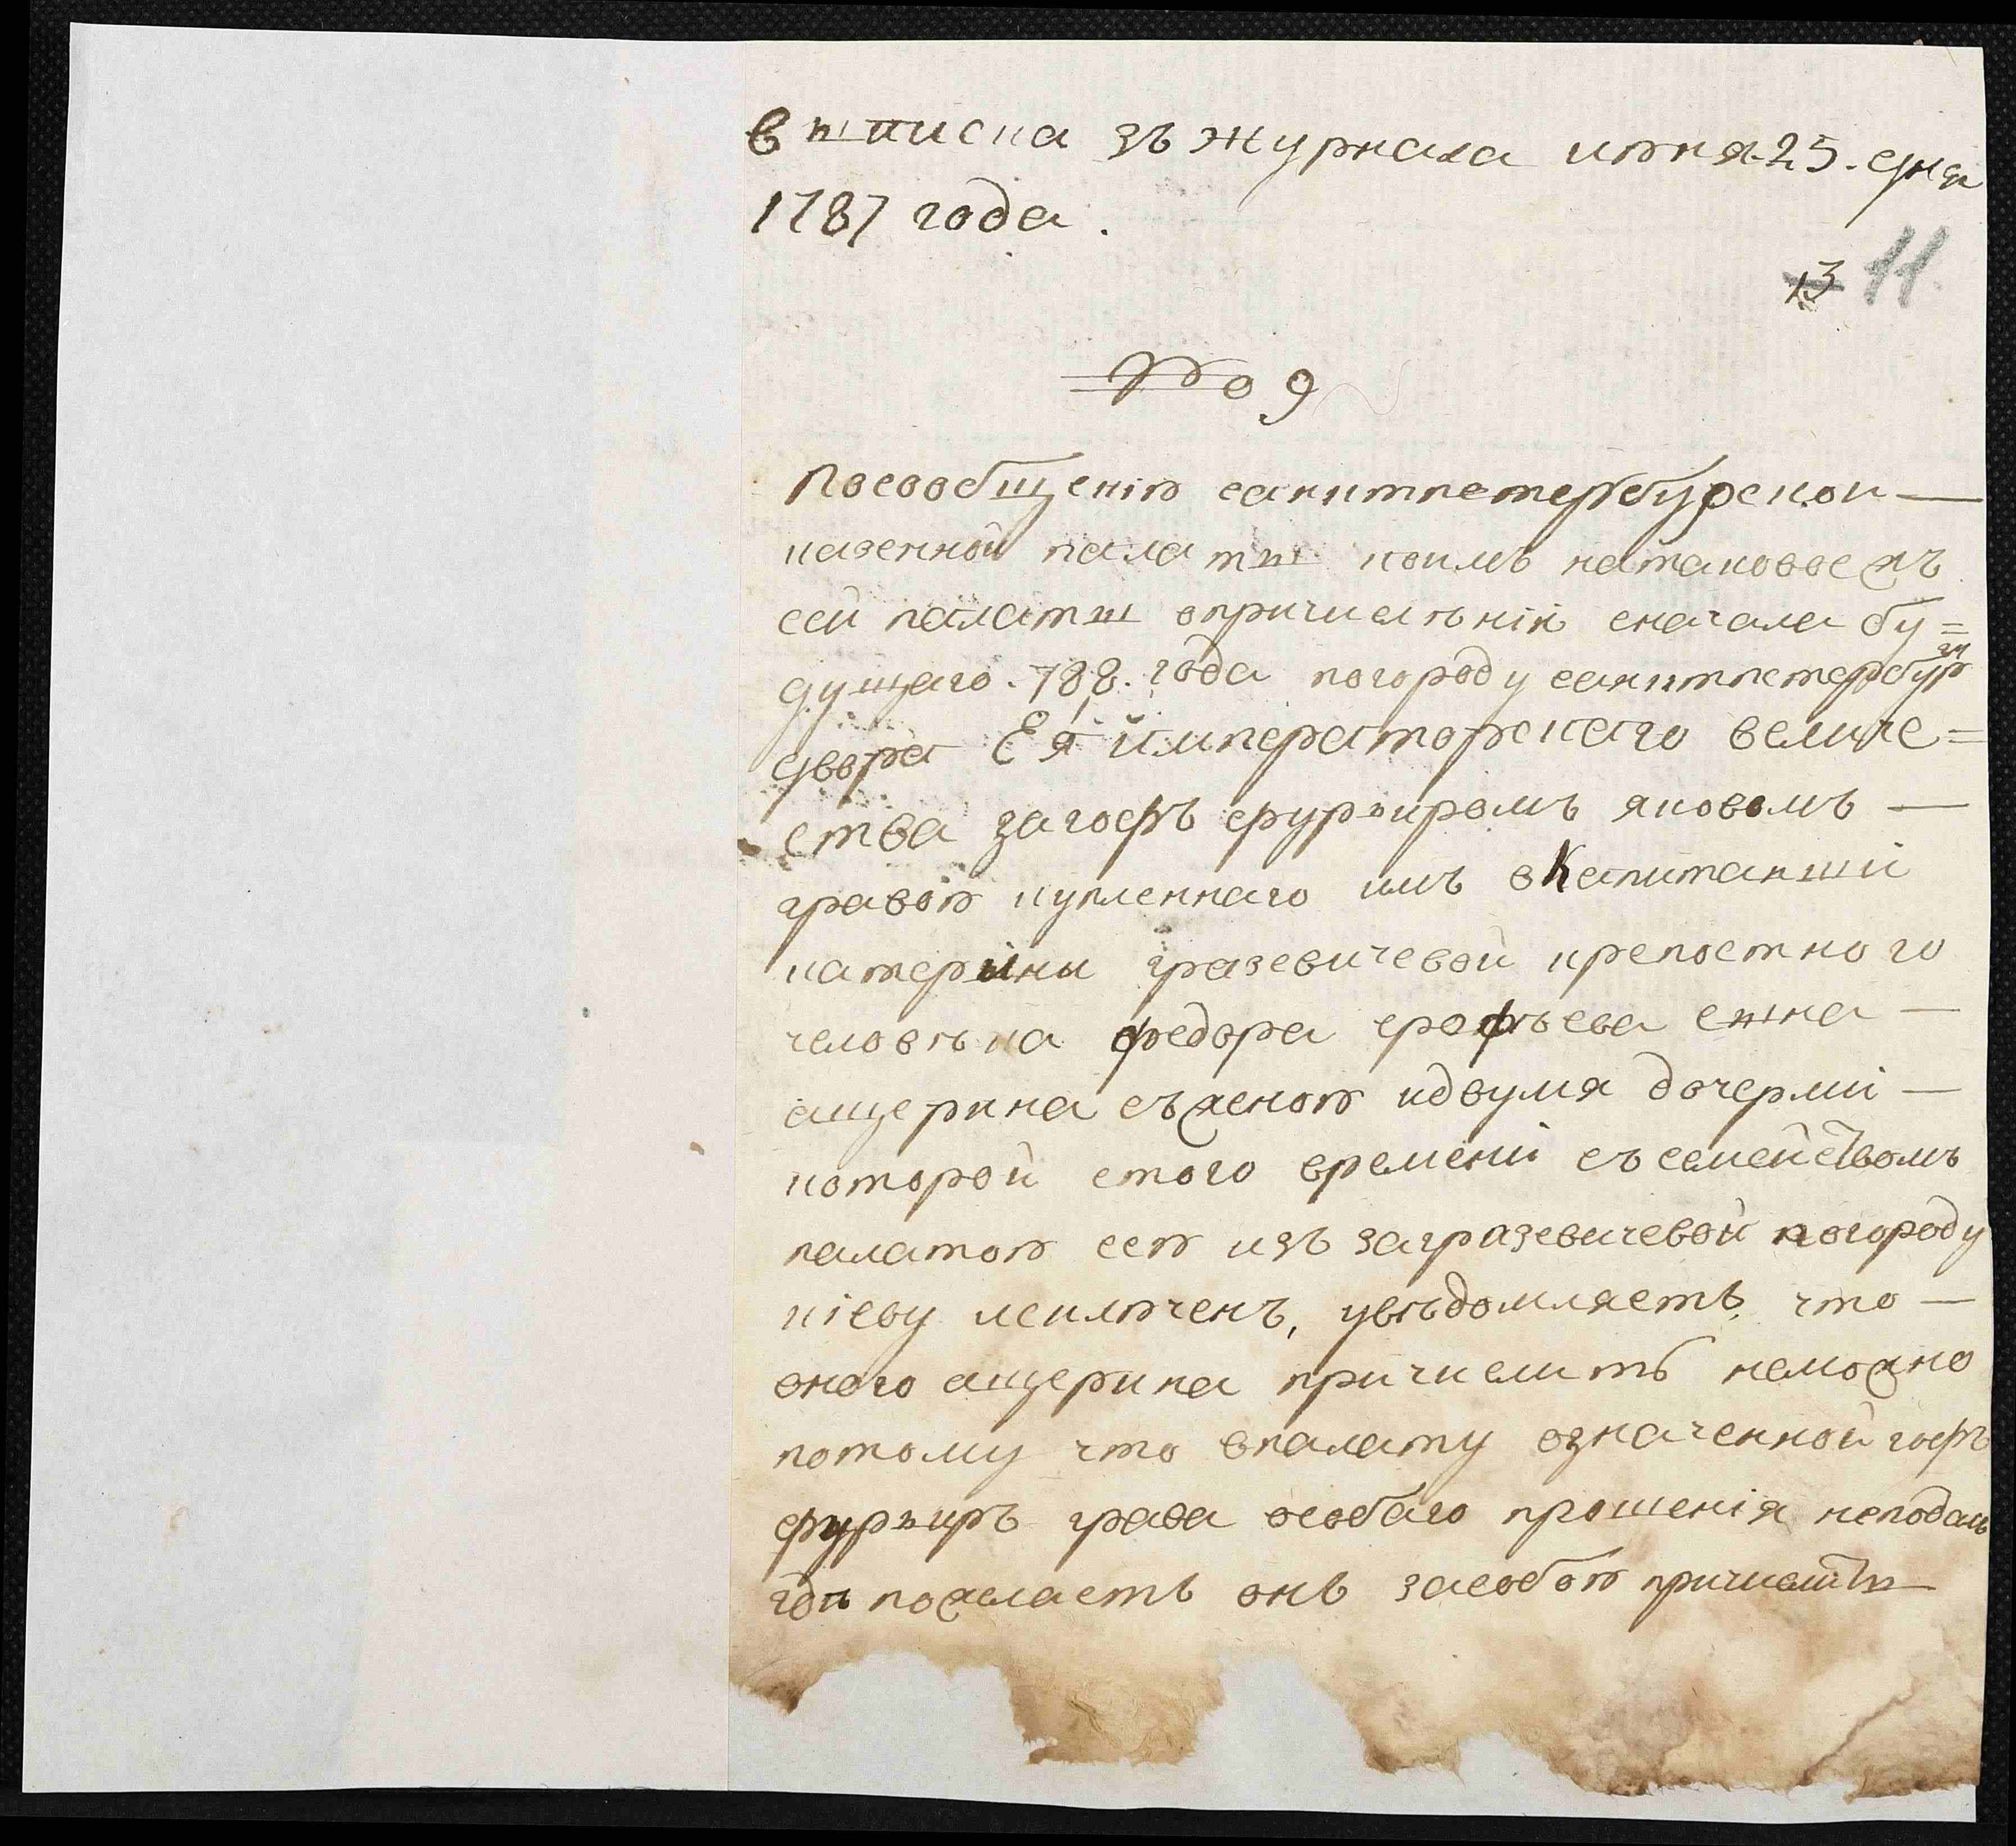 выписка зъ журнала июня 25. дня
1787 года.
13 11.
№ 9
Посообщению санктпетербурской —
казенной палаты коимъ натаковое жъ
сей палаты опричисленіи сначала бу=
дущаго. 788. года погороду санктпетербургу
двора Ея императорскаго величе=
ства загофъ фурьиромъ яковомъ —
гравою купленнаго имъ вКапитанши
катерины гразевичевой крепостного
человека федора ерофѣева сына —
ащерина съженою идвумя дочерми —
которой стого времени съсемействомъ
палатою сею изъ загразевичевой погороду
кіеву исключенъ, увѣдомляетъ, что —
оного ащерина причислить неможно
потому что впалату означенной гофъ
фурьиръ грава особаго прошенія неподалъ
пожелаетъ онъ засобою причислить